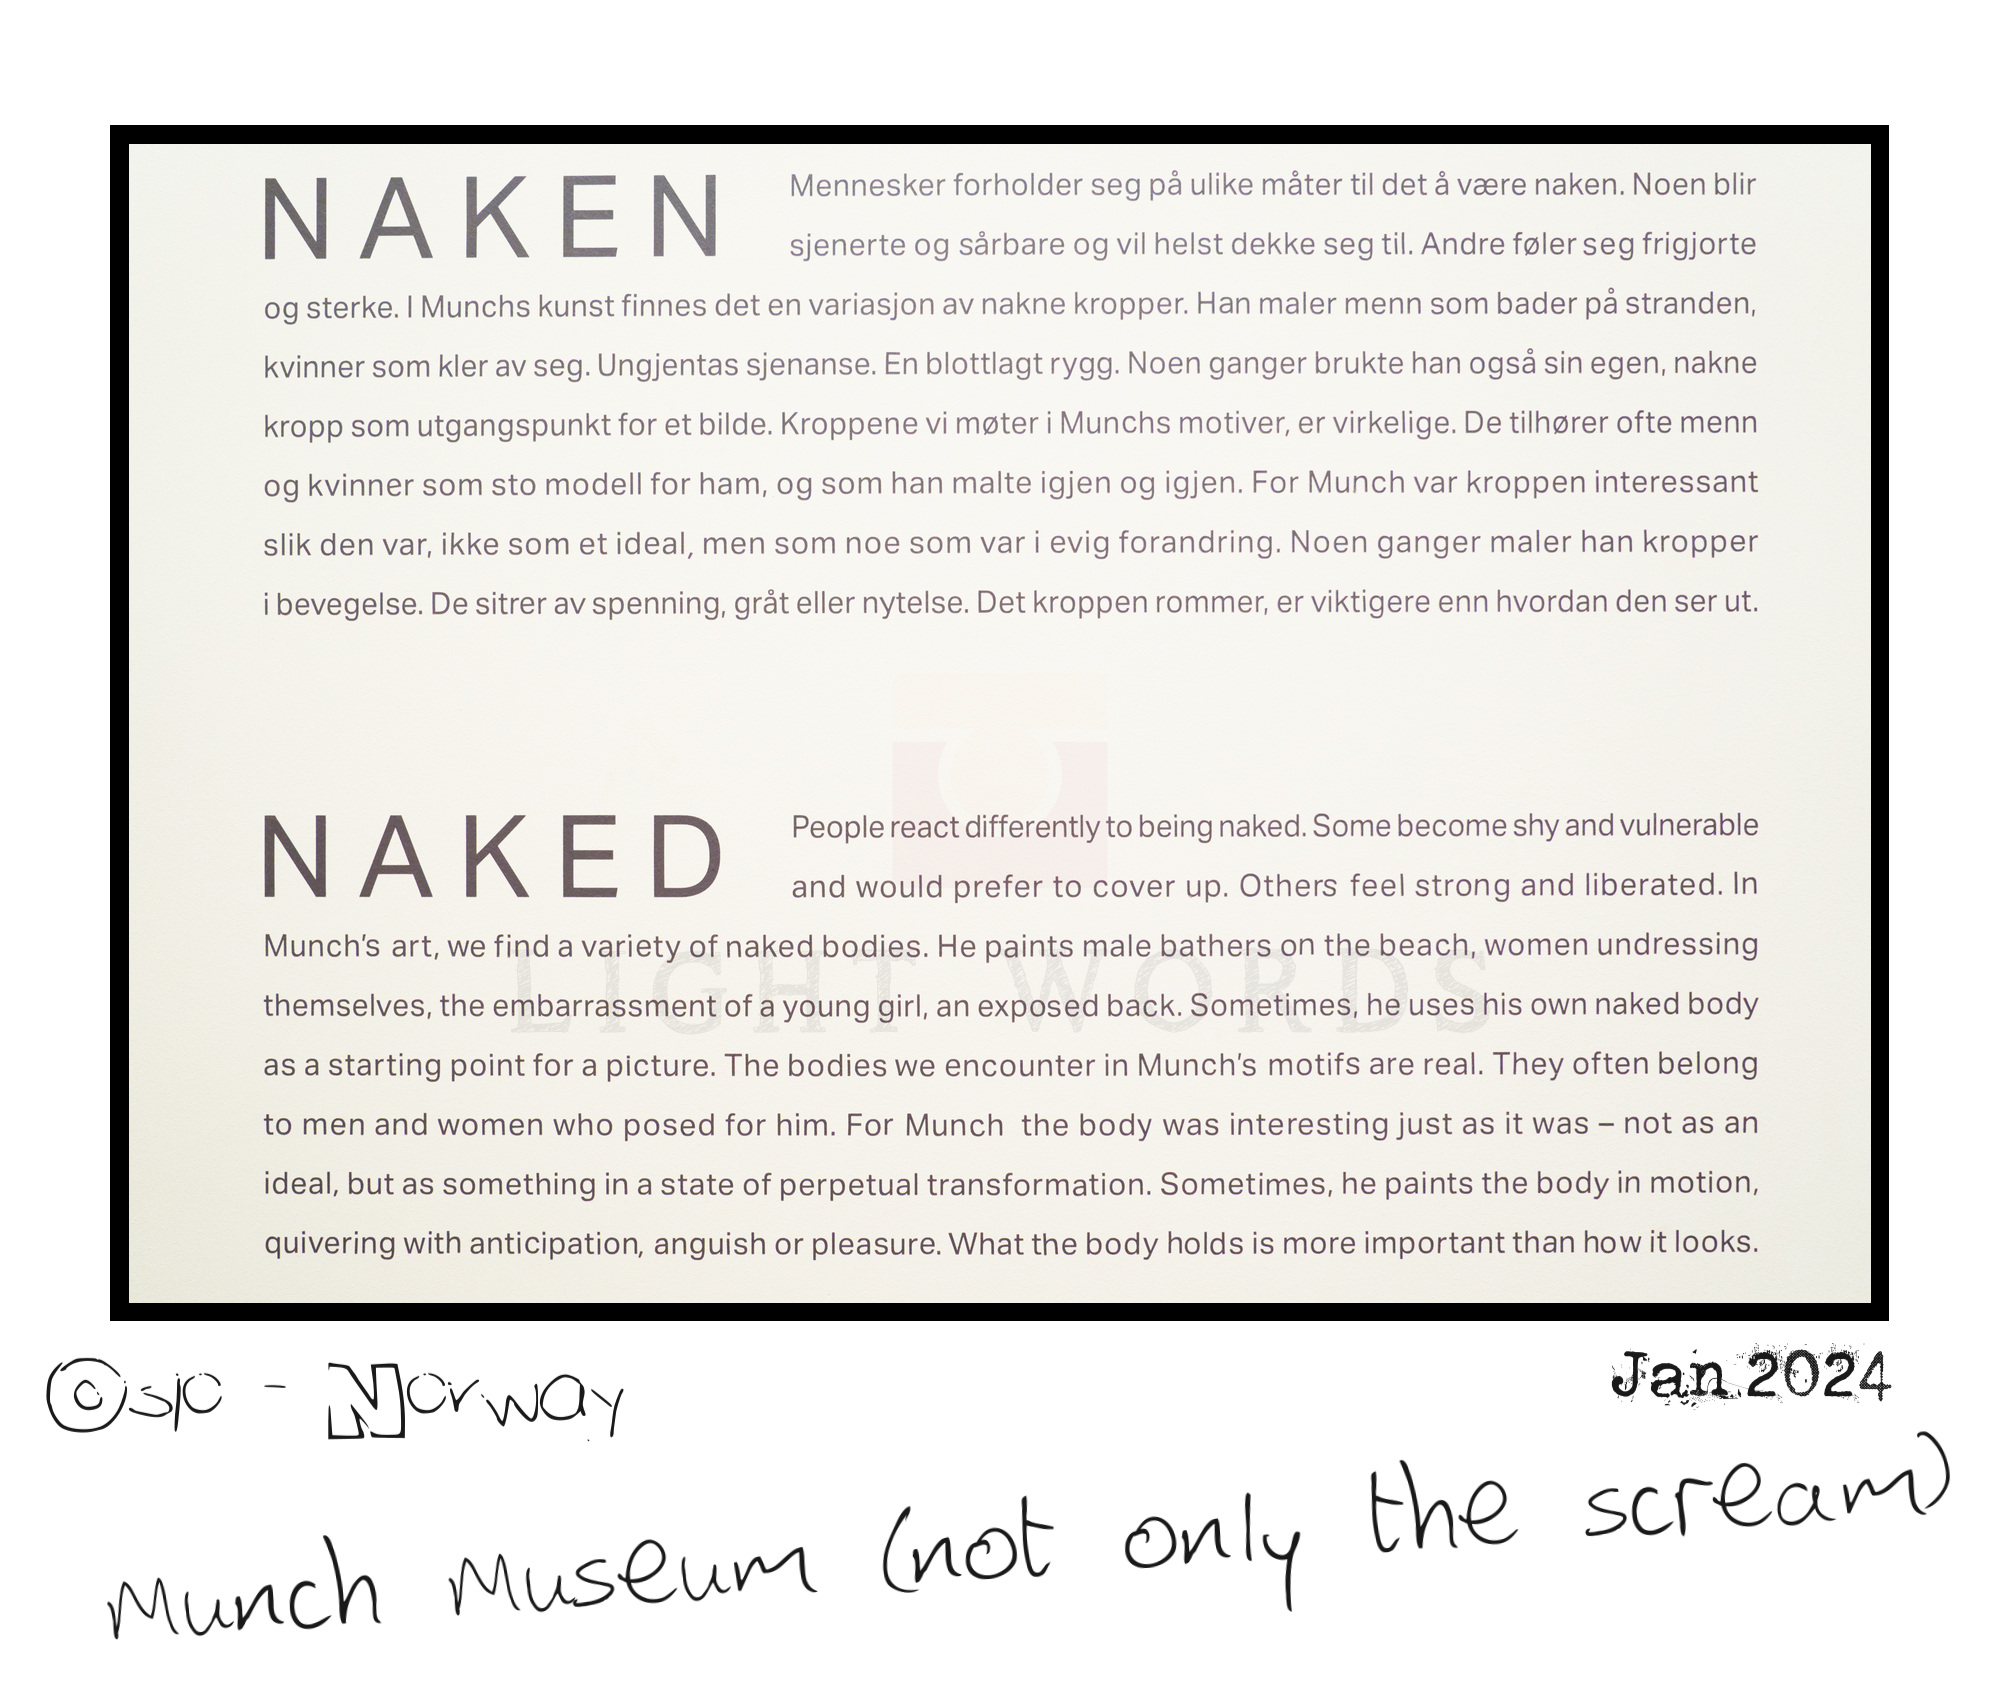 NAKEN
Mennesker forholder seg på ulike måter til det å være naken. Noen blir
sjenerte og sårbare og vil helst dekke seg til. Andre føler seg frigjorte
og sterke. I Munchs kunst finnes det en variasjon av nakne kropper. Han maler menn som bader på stranden,
kvinner som kler av seg. Ungjentas sjenanse. En blottlagt rygg. Noen ganger brukte han også sin egen, nakne
kropp som utgangspunkt for et bilde. Kroppene vi møter i Munchs motiver, er virkelige. De tilhører ofte menn
og kvinner som sto modell for ham, og som han malte igjen og igjen. For Munch var kroppen interessant
slik den var, ikke som et ideal, men som noe som var i evig forandring. Noen ganger maler han kropper
i bevegelse. De sitrer av spenning, gråt eller nytelse. Det kroppen rommer, er viktigere enn hvordan den ser ut.
NAKED
People react differently to being naked. Some become shy and vulnerable
and would prefer to cover up. Others feel strong and liberated. In
Munch's art, we find a variety of naked bodies. He paints male bathers on the beach, women undressing
themselves, the embarrassment of a young girl, an exposed back. Sometimes, he uses his own naked body
as a starting point for a picture. The bodies we encounter in Munch's motifs are real. They often belong
to men and women who posed for him. For Munch the body was interesting just as it was – not as an
ideal, but as something in a state of perpetual transformation. Sometimes, he paints the body in motion,
quivering with anticipation, anguish or pleasure. What the body holds is more important than how it looks.
LIGHT WORDS
Oslo - Norway
Jan 2024
Munch Museum (not only the scream)